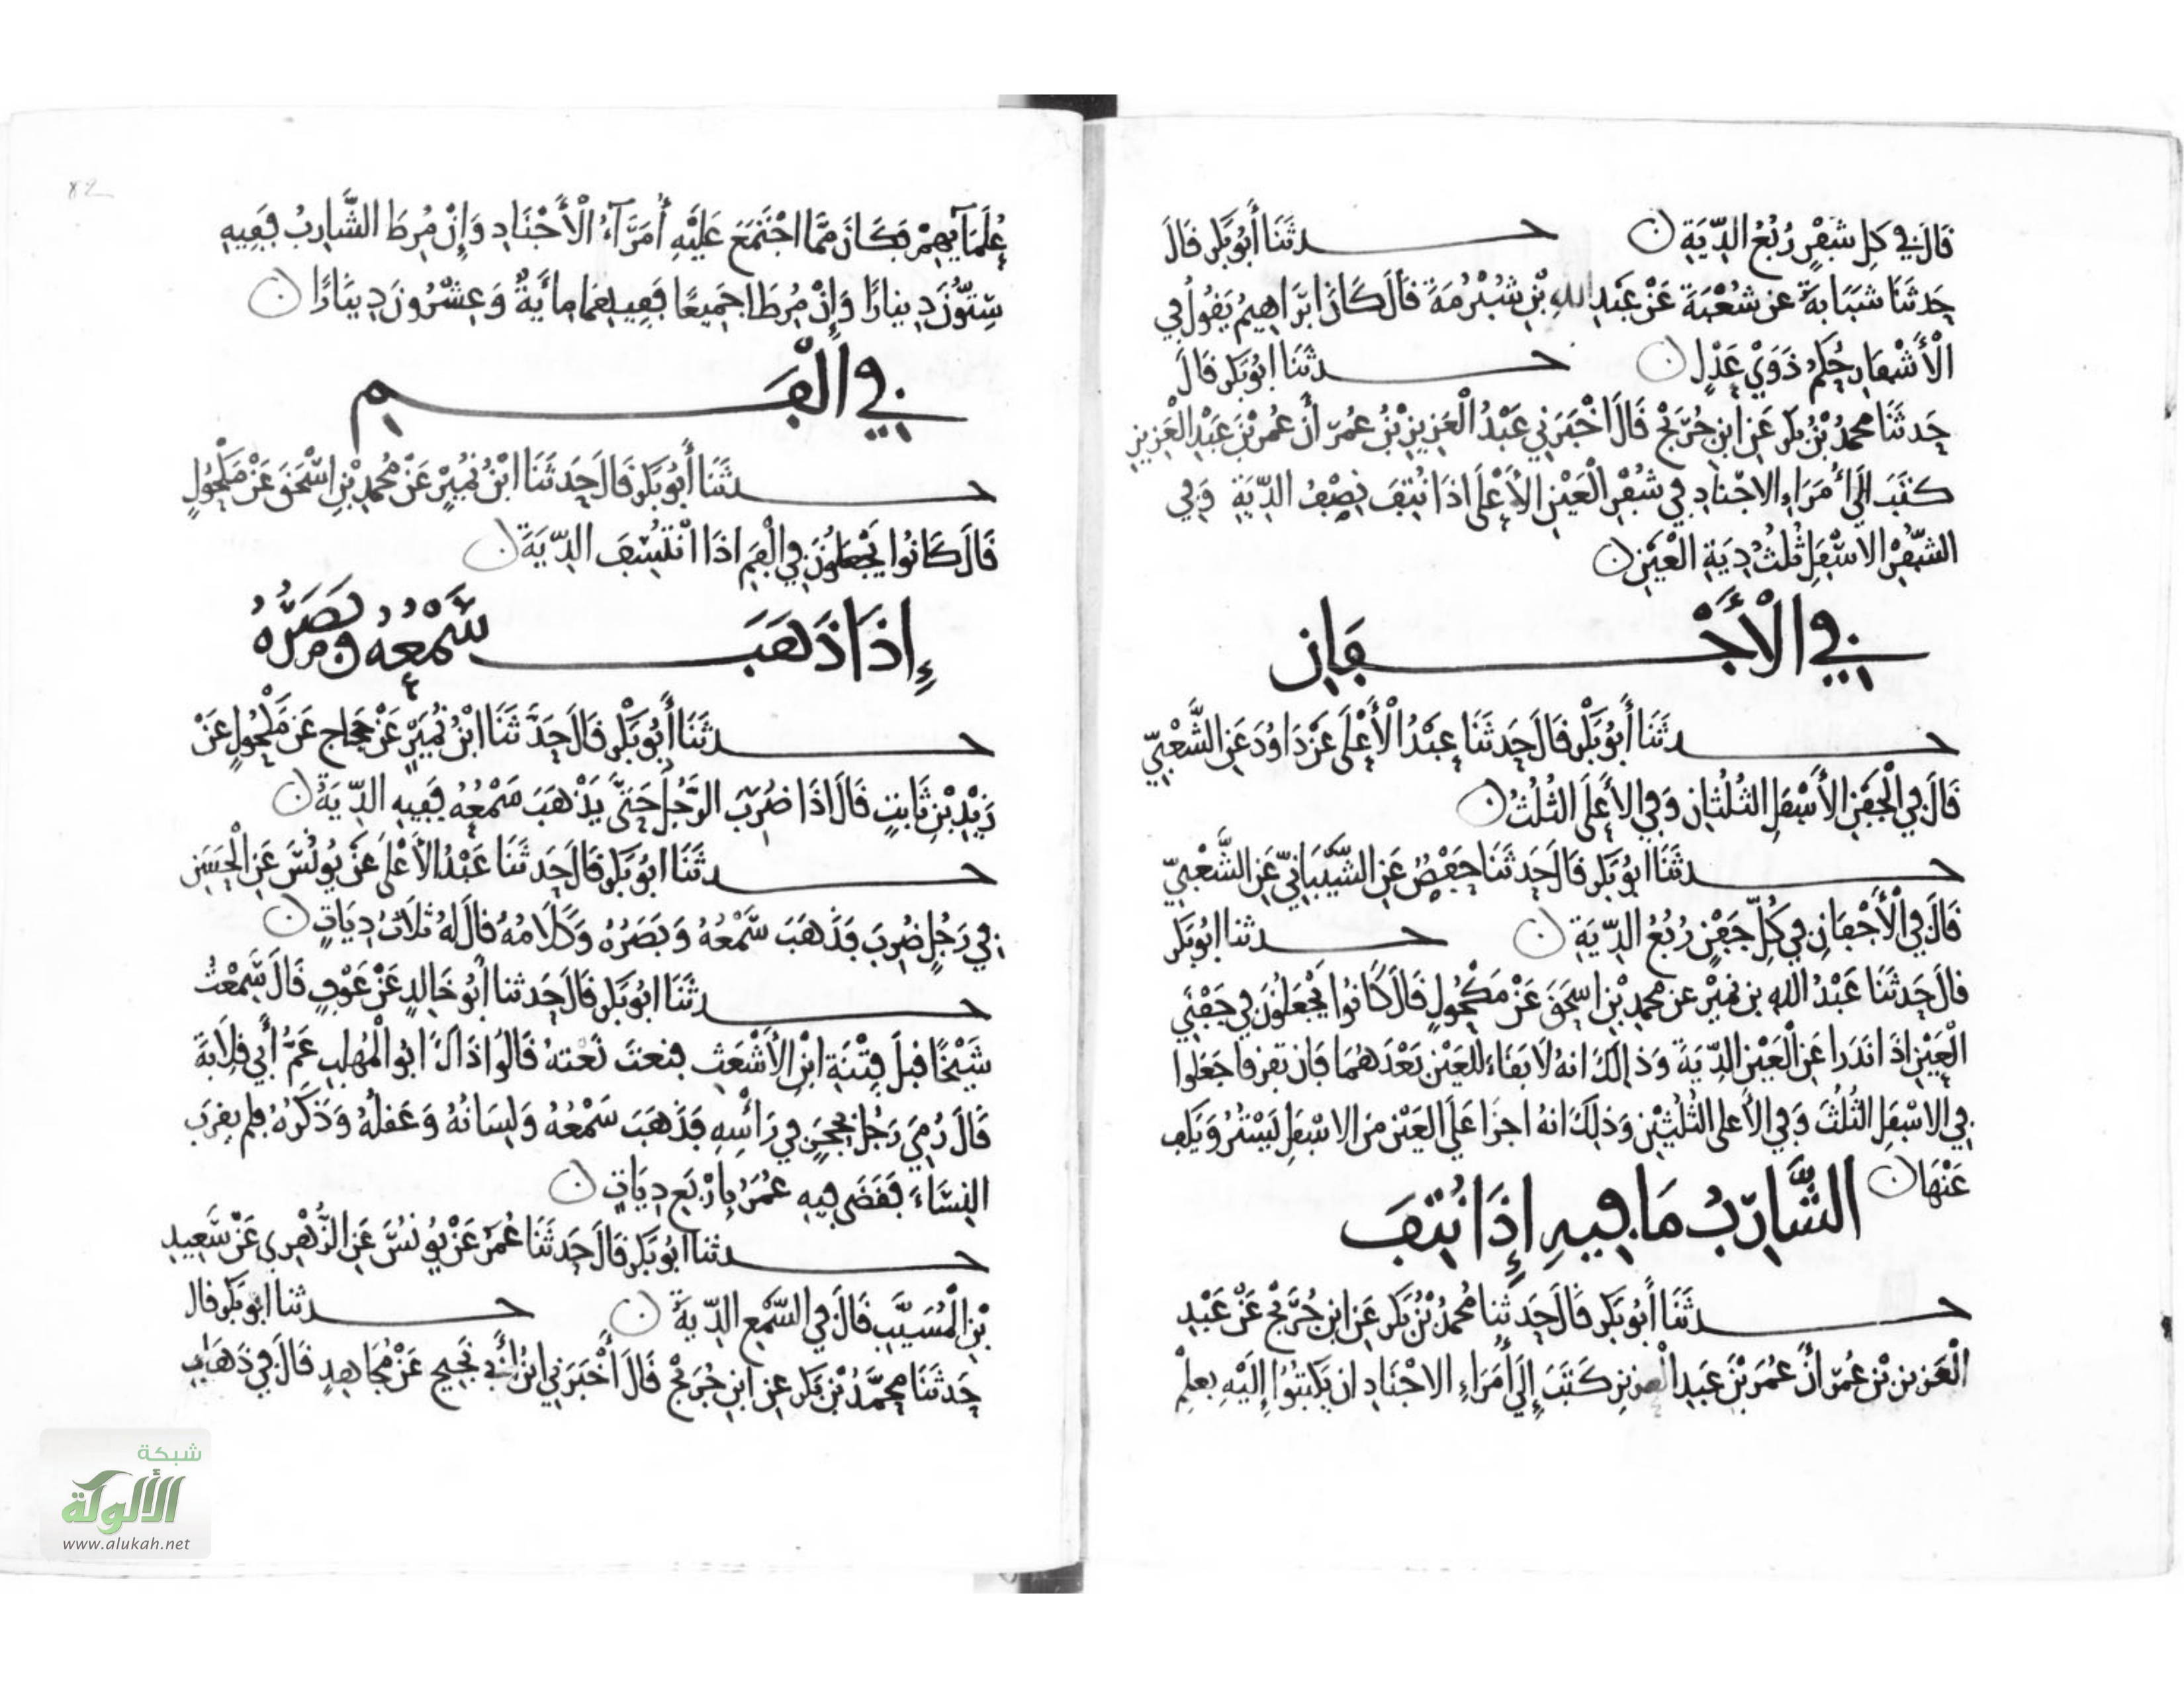 قَالَ فِي كل شَفْرٍ رُبُعُ الدِّيَةِ ن حـــدثَنَا أَبُو بَكر قَالَ
حَدثَنَا شَبَابَةُ عَن شُعْبَةَ عَنْ عَبْدِ اللهِ بْنِ شُبْرُمَةَ قَالَ كَانَ ابْرَاهِيمُ يَقُولُ فِي
الْأَشْفَارِ حُكمُ ذَوَيْ عَدْلٍ ن حـــدثَنَا ابُو بَكر قَالَ
حَدثَنَا محمدُ بْنُ بكر عَنِ ابنِ جُرَيْجٍ قَالَ اخْبَرَنِي عَبْدُ الْعَزِيزِ بْنُ عُمَرَ أَنَّ عُمَرَ بْنَ عَبْدِ الْعَزِيزِ
كتَبَ الَى أُمَرَاءِ الاجْنَادِ فِي شُفْرِ الْعَيْنِ الأَعْلَى اذَا نُتِفَ نِصْفُ الدِّيَةِ وَفِي
الشُّفْرِ الاسْفَلِ ثُلُثُ دِيَةِ الْعَيْنِ ن
فِي الْأَجْـــفَانِ
حـــدثَنَا أَبُو بَكْر قَالَ حَدثَنَا عَبْدُ الْأَعْلَى عَنْ دَاوُدَ عَنِ الشَّعْبِيِّ
قَالَ فِي الْجَفْنِ الأَسْفَلِ الثُلُثَانِ وَفِي الأَعْلَى الثُلُثُ ن
حـــدثَنَا ابُو بَكر قَالَ حَدثَنَا حَفْصٌ عَنِ الشَّيْبَانِيِّ عَنِ الشَّعْبِيِّ
قَالَ فِي الْأَجْفَانِ فِي كُلِّ جَفْنٍ رُبُعُ الدِّيَةِ ن حـــدثنا ابُو بَكر
قالَ حَدثَنَا عَبْدُ اللهِ بن نمَيْرٍ عن محمدِ بْنِ اسحَقَ عَنْ مَكْحُولٍ قَالَ كَانُوا يَجْعَلُونَ فِي جَفْنَيِ
الْعَيْنِ اذَا نَدَرَا عَنِ الْعَيْنِ الدِّيَةَ وَذلِكَ انهُ لَا بَقَاءَ لِلْعَيْنِ بَعْدَهُمَا فَان تفرقا جَعَلُوا
فِي الاسْفَلِ الثُلُثَ وَفِي الأَعلى الثُلُثَيْنِ وَذلِكَ انهُ اجزَا عَلَى العَيْنِ مِنَ الاسْفَلِ يَسْتُرُ وَيَكُف
عَنْهَا ن
الشَّارِبُ مَا فِيهِ إِذَا نُتِفَ
حـــدثَنَا أَبُو بَكر قَالَ حَدثَنَا مُحمدُ بْنُ بَكر عَنِ ابنِ جُرَيْجٍ عَنْ عَبْدِ
الْعَزِيزِ بْنِ عُمَرَ أَنَّ عُمَرَ بْنَ عَبدِ الْعزِيزِ كَتَبَ إِلَى أُمَرَاءِ الاجْنَادِ ان يَكتبُوا إِلَيْهِ بعِلْمِ
82
عُلَمَآيِهِمْ فكَانَ مِمَّا اجْتَمَعَ عَلَيْهِ أُمَرَآءُ الْأَجْنَادِ وَإِنْ مُرِطَ الشَّارِبُ فَفِيهِ
سِتُّونَ دِينارًا وَإِنْ مُرِطَا جَمِيعًا فَفِيهِمَا مِايَةٌ وَعِشْرُونَ دِينَارًا ن
فِي الْفَـــمِ
حـــدثَنَا أَبُو بَكر قَالَ حَدثَنَا ابْنُ نُمَيْرٍ عَنْ مُحمدِ بْنِ اسْحَقَ عَنْ مَكْحُولٍ
قَالَ كَانُوا يَجْعَلُونَ فِي الْفَمِ اذَا انْتُسِفَ الدِّيَةَ ن
إِذَا ذَهَبَ ـــ سَمْعُهُ وَبَصَرُهُ
حـــدثَنَا أَبُو بَكْر قَالَ حَدَّثَنَا ابْنُ نُمَيْرٍ عَنْ حَجاج عَن مَكْحُولٍ عَنْ
زَيْدِ بْنِ ثَابتٍ قَالَ اذَا ضُرِبَ الرَّجُلُ حَتَّى يَذْهَبَ سَمْعُهُ فَفِيهِ الدِّيَةُ ن
حـــدثَنَا ابُو بَكر قَالَ حَدثَنَا عَبْدُ الأَعْلَى عَنْ يُونُسَ عَنِ الْحَسَنِ
فِي رَجُلٍ ضُرِبَ فَذَهَبَ سَمْعُهُ وَبَصَرُهُ وَكَلَامُهُ قالَ لهُ ثلَاثُ دِيَاتٍ ن
حـــدثَنَا ابُو بَكر قالَ حَدثنا أَبُو خَالدٍ عَنْ عَوْفٍ قَالَ سَمِعْتُ
شَيْخًا قَبلَ فِتْنَةِ ابْنِ الأَشْعَثِ فنعتَ نَعْتَهُ قَالُوا ذَاكَ ابُو الْمُهلبِ عَمُّ أَبِي قِلَابَةَ
قَالَ رُمِيَ رَجُلٌ بحَجَرٍ فِي رَأْسِهِ فَذَهَبَ سَمْعُهُ وَلِسَانُهُ وَعَقْلُهُ وَذَكَرُهُ فلم يقرَبِ
النِسَاءَ فَقَضَى فِيهِ عُمَرُ بِارْبَعِ دِيَاتٍ ن
حـــدثنا ابُو بَكر قَالَ حَدثَنَا عُمَرُ عَنْ يُونُسَ عَنِ الزُّهْرِي عَنْ سَعِيدِ
بْنِ الْمُسَيَّبِ قَالَ فِي السَّمْعِ الدِّيَةُ ن حـــدثنا ابُو بَكر قال
حَدثَنَا مُحمَّدُ بْنُ بَكر عَنِ ابْنِ جُرَيْجٍ قَالَ أَخْبَرَنِي ابْنُ أَبِي نَجِيحٍ عَنْ مُجَاهِدٍ قَالَ فِي ذَهَابِ
شبكة
الألوكة
www.alukah.net